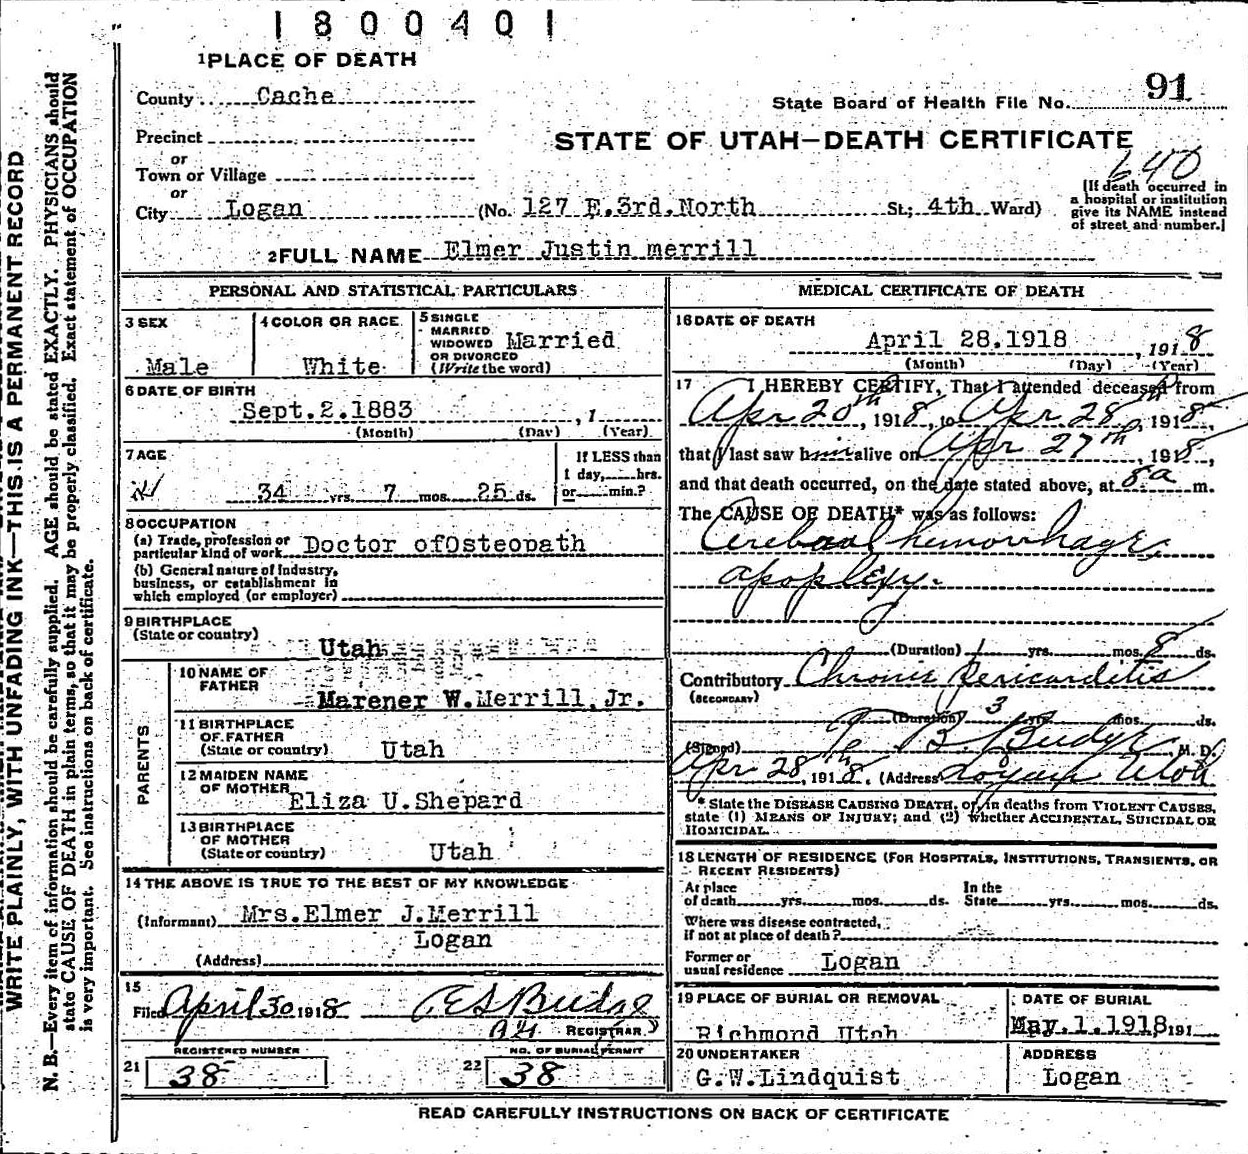 1800401
1 PLACE OF DEATH
County Cache
State Board of Health File No. 91
Precinct
STATE OF UTAH—DEATH CERTIFICATE
or
640
Town or Village
or
City Logan (No. 127 E.3rd.North St; 4th Ward)
[If death occurred in
a hospital or institution
give its NAME instead
of street and number.]
2 FULL NAME Elmer Justin merrill
PERSONAL AND STATISTICAL PARTICULARS
3 SEX
Male
4 COLOR OR RACE
White
5 SINGLE
MARRIED
WIDOWED
OR DIVORCED
(Write the word)
Married
6 DATE OF BIRTH
Sept.2.1883 , 1
(Month) (Day) (Year)
7 AGE
34 yrs. 7 mos. 25 ds.
If LESS than
1 day, hrs.
or min.?
8 OCCUPATION
(a) Trade, profession or
particular kind of work Doctor ofOsteopath
(b) General nature of Industry,
business, or establishment in
which employed (or employer)
9 BIRTHPLACE
(State or country)
Utah
PARENTS
10 NAME OF
FATHER
Marener W.Merrill, Jr.
11 BIRTHPLACE
OF FATHER
(State or country) Utah
12 MAIDEN NAME
OF MOTHER
Eliza U.Shepard
13 BIRTHPLACE
OF MOTHER
(State or country) Utah
14 THE ABOVE IS TRUE TO THE BEST OF MY KNOWLEDGE
(Informant) Mrs.Elmer J.Merrill
Logan
(Address)
15
Filed April 30 1918
REGISTRAR
REGISTERED NUMBER
21 38
NO. OF BURIAL PERMIT
22 38
MEDICAL CERTIFICATE OF DEATH
16 DATE OF DEATH
April 28.1918 , 1918
(Month) (Day) (Year)
17 I HEREBY CERTIFY, That I attended deceased from
Apr 20th, 1918, to Apr 28th, 1918,
that I last saw him alive on Apr 27th, 1918,
and that death occurred, on the date stated above, at 8a m.
The CAUSE OF DEATH* was as follows:
Cerebral hemorrhage,
apoplexy.
(Duration) yrs. mos. 8 ds.
Contributory Chronic Pericarditis
(SECONDARY)
(Duration) 3 yrs. mos. ds.
(Signed) B. Budge, M. D.
Apr 28th, 1918. (Address) Logan Utah
* State the DISEASE CAUSING DEATH, or, in deaths from VIOLENT CAUSES,
state (1) MEANS OF INJURY; and (2) whether ACCIDENTAL, SUICIDAL OR
HOMICIDAL.
18 LENGTH OF RESIDENCE (FOR HOSPITALS, INSTITUTIONS, TRANSIENTS, OR
RECENT RESIDENTS)
At place
of death yrs. mos. ds.
In the
State yrs. mos. ds.
Where was disease contracted,
if not at place of death?
Former or
usual residence Logan
19 PLACE OF BURIAL OR REMOVAL
Richmond Utah
DATE OF BURIAL
May.1.1918, 191
20 UNDERTAKER
G.W.Lindquist
ADDRESS
Logan
READ CAREFULLY INSTRUCTIONS ON BACK OF CERTIFICATE
WRITE PLAINLY, WITH UNFADING INK—THIS IS A PERMANENT RECORD
N. B.—Every item of information should be carefully supplied. AGE should be stated EXACTLY. PHYSICIANS should
state CAUSE OF DEATH in plain terms, so that it may be properly classified. Exact statement of OCCUPATION
is very important. See instructions on back of certificate.